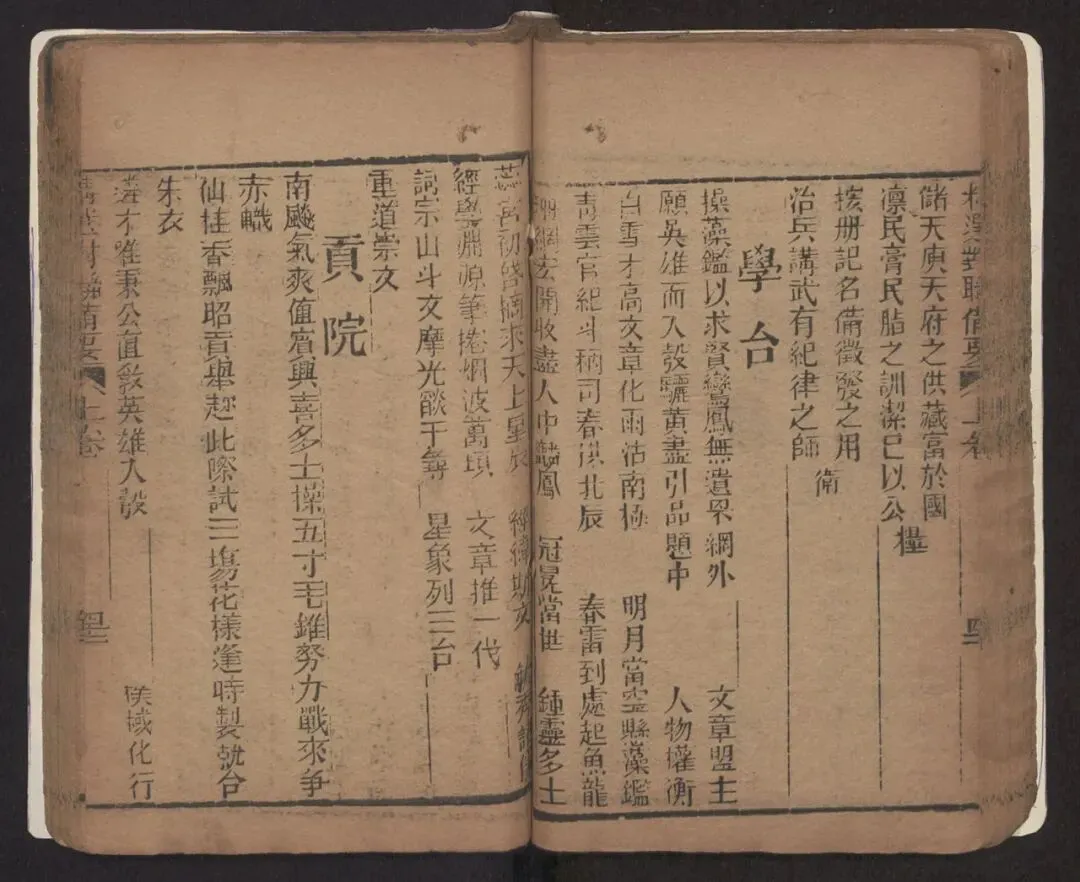 儲天庾天府之供藏富於國
凛民膏民脂之訓潔己以公 糧
核册記名備徵發之用
治兵講武有紀律之師 衛
學台
操藻鑑以求賢鸞鳳無遺罘網外 文章盟主
願英雄而入彀驪黃盡引品題中 人物權衡
白雪才高文章化雨沽南極 明月當空縣藻鑑
靑雲官紀斗柄司春洪北辰 春雷到處起魚龍
網宏開收盡人中麟鳳 冠冕當世 鍾靈多士
初啓摘來天上星辰 經緯斯文
經學淵源筆捲烟波萬頃 文章推一代
詞宗山斗文摩光燄千尋 星象列三台
重道崇文
貢院
南颷氣爽值賓興喜多士操五寸毛錐努力戰來爭
赤幟
仙桂香飄昭貢舉趂此際試三塲花樣逢時製就台
朱衣
才唯秉公值敎英雄入彀 棫化行
上卷